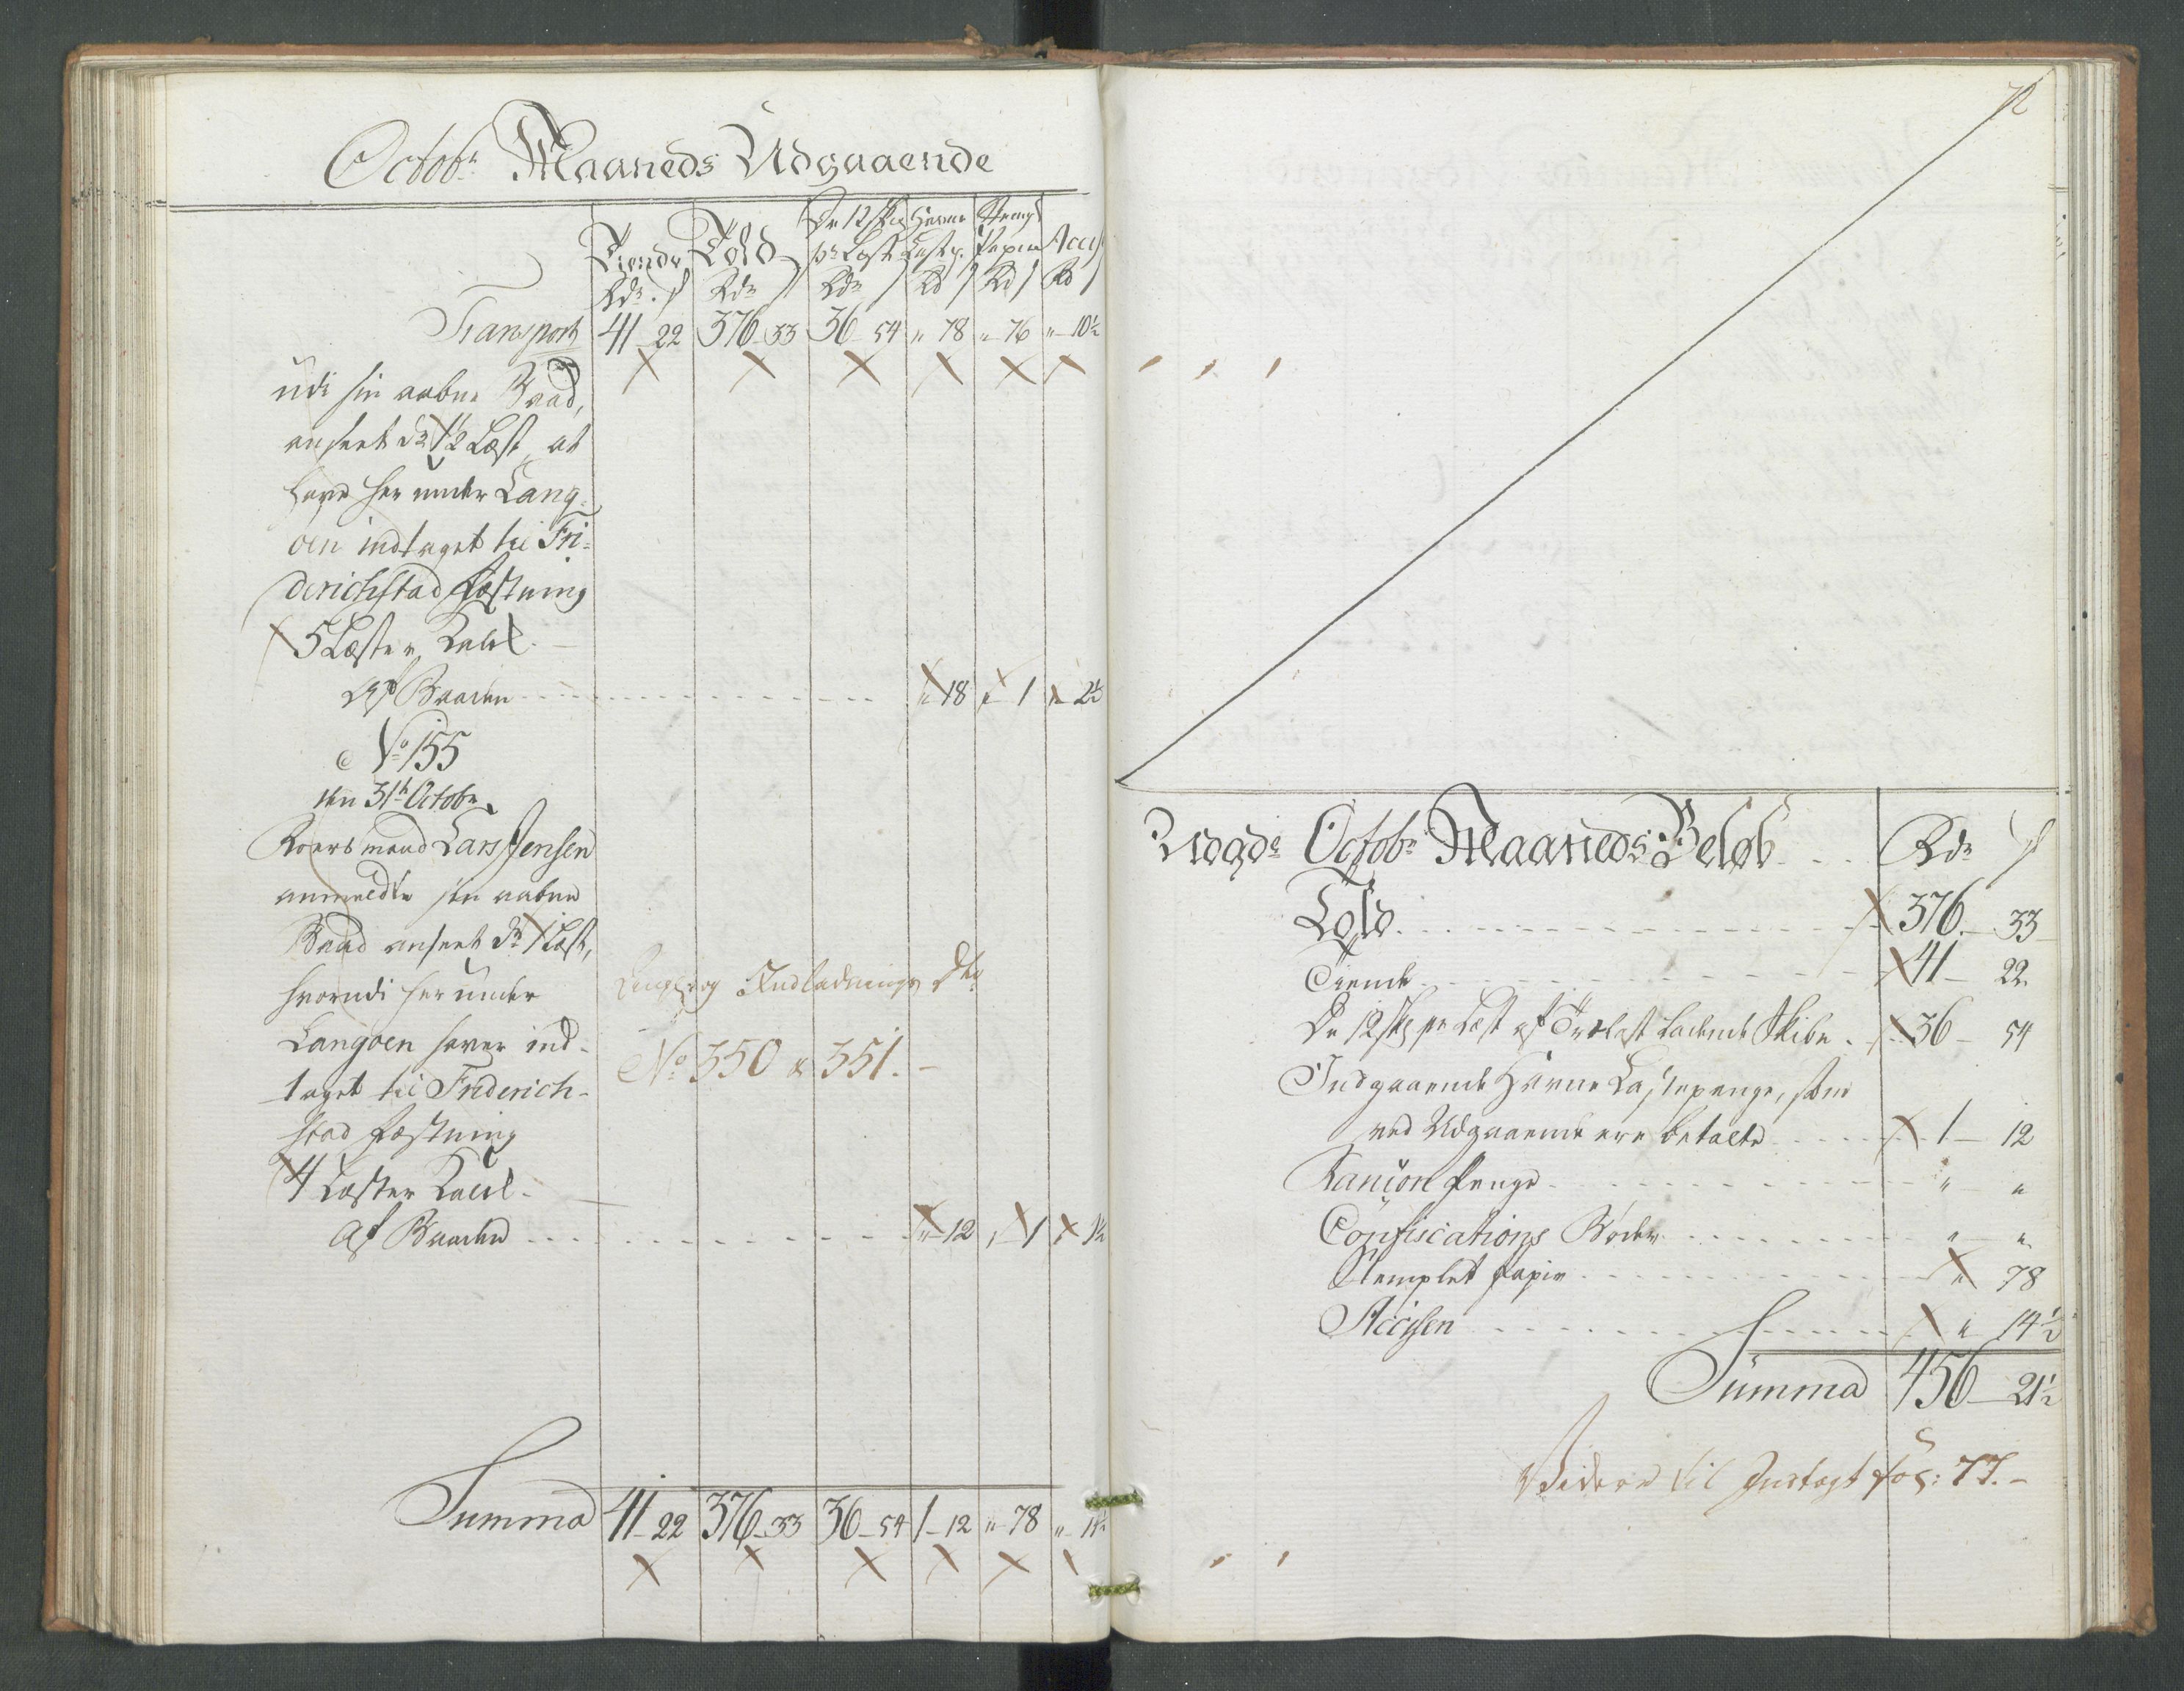 Octobr Maaneds Udgaaende
Tiende Told De 12 skg pr Læst Havne Lastep. Stempl Papier Accis
Rdr s Rdr s Rdr s Rd s Rd s Rd s
Transport 41 - 22 376 - 33 36 - 54 " 78 " 76 " - 10½
udi sin aabne Baad,
ansent dr 1½ Læst, at
have her under Lang-
öen indtaget til Fri-
derichstad Fæstning
5 Læster Kalk.
Af Baaden " 18 " 1 " 2½
No 155
den 31te Octobr
Roersmand Lars Jensen
anmeldte sin aabne
Baad ansent Dr 1 Læst,
hvorudi her under
Langöen haver ind-
taget til Friderich-
stad Fæstning
4 Læster Kalk.
Af Baaden " 12 " 1 " 1½
Indladnings
No 350 & 351.
Summa 41 - 22 376 - 33 36 - 54 1 - 12 " 78 " 14½
72
Udgde Octobr Maaneds Beløb Rdr s
Told 376 - 33
Tiende 41 - 22
De 12 skg pr Læst af Trælast ladende Skibe 36 - 54
Indgaaende Havne Lastepenge, som
ved Udgaaende ere betalte 1 - 12
Rantion Penge " "
Confiscations Bøder " "
Stemplet Papir " 78
Accisen " 14½
Summa 456 - 21½
Videre til Indtægt fol: 77.-